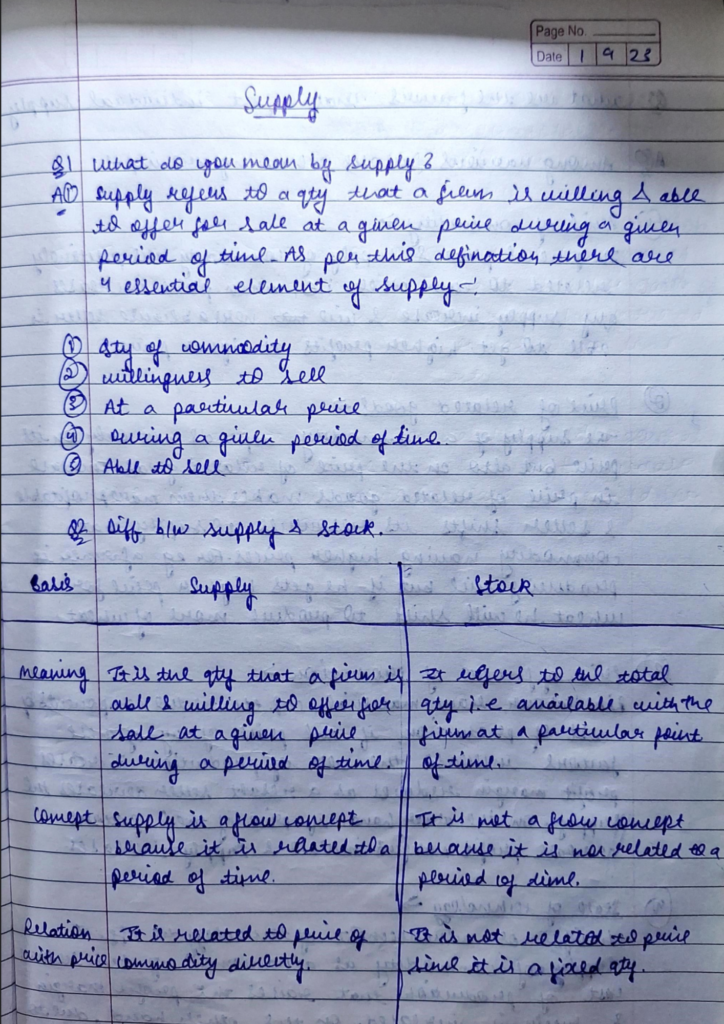 Page No.
Date 1 9 23
Supply
Q1 What do you mean by supply?
A① Supply refers to a qty that a firm is willing & able
to offer for sale at a given price during a given
period of time. As per this defination there are
4 essential element of supply -:
① Qty of commodity
② willingness to sell
③ At a particular price
④ During a given period of time.
⑤ Able to sell
Q2 Diff b/w supply & stock.
Basis Supply Stock
Meaning It is the qty that a firm is It refers to the total
able & willing to offer for qty i.e available with the
sale at a given price firm at a particular point
during a period of time. of time.
Concept Supply is a flow concept It is not a flow concept
because it is related to a because it is not related to a
period of time. period of time.
Relation It is related to price of It is not related to price
with price commodity directly. since it is a fixed qty.